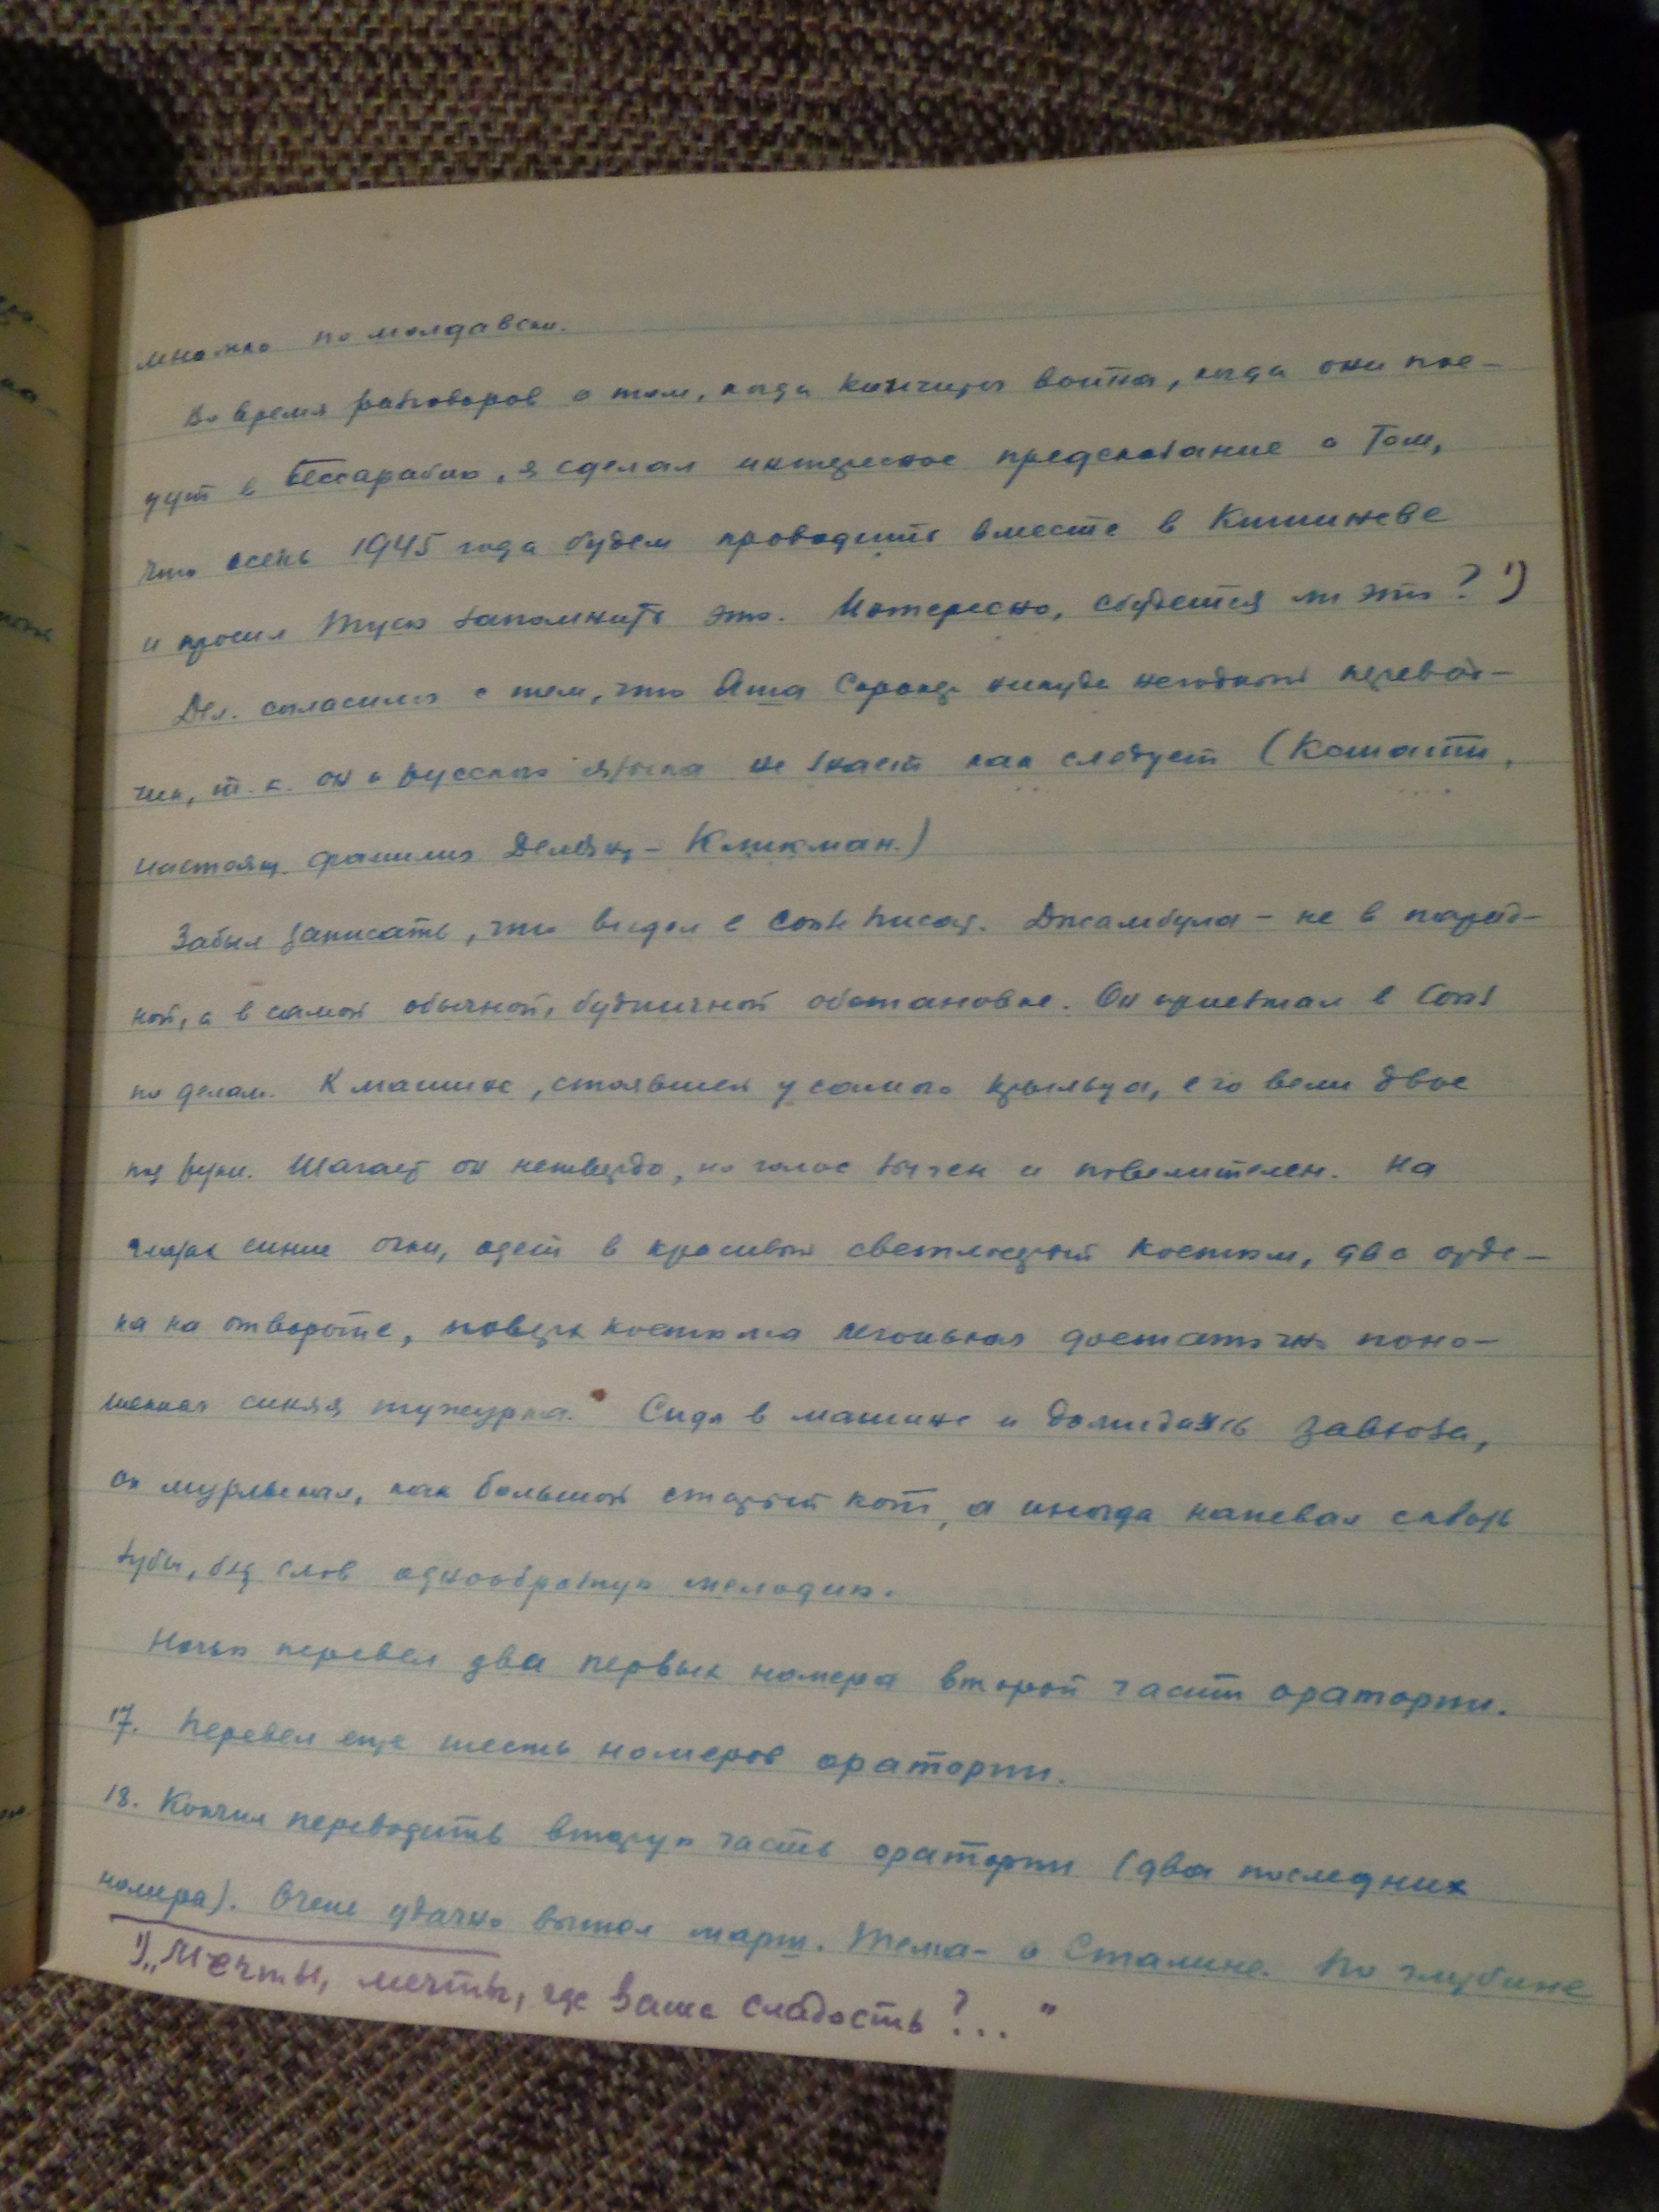 множко по молдавски.
Во время разговоров о том, когда кончится война, когда они пое-
дут в Бессарабию, я сделал интересное предсказание о том,
что осень 1945 года будем проводить вместе в Кишиневе
и просил Тусю запомнить это. Интересно, сбудется ли это? 1)
Дел. согласился с тем, что Яша никуда негодный перевод-
чик, т.к. он и русского языка не знает как следует (Кстати,
настоящ. фамилия Делеану - Кликман.)
Забыл записать, что видел в Союзе писат. Джамбула - не в парад-
ной, а в самой обычной, будничной обстановке. Он приезжал в Союз
по делам. К машине, стоявшей у самого крыльца, его вели двое
под руки. Шагает он нетвердо, но голос зычен и повелителен. На
глазах синие очки, одет в красивый светлосерый костюм, два орде-
на на отвороте, поверх костюма легонькая достаточно поно-
шенная синяя тужурка. Сидя в машине и дожидаясь
он мурлыкал, как большой старый кот, а иногда напевал сквозь
зубы, без слов однообразную мелодию.
Ночью перевел два первых номера второй части оратории.
17. Перевел еще шесть номеров оратории.
18. Кончил переводить вторую часть оратории (два последних
номера). Очень удачно вышел марш. Тема - о Сталине. По глубине
1) „Мечты, мечты, где ваша сладость?..."